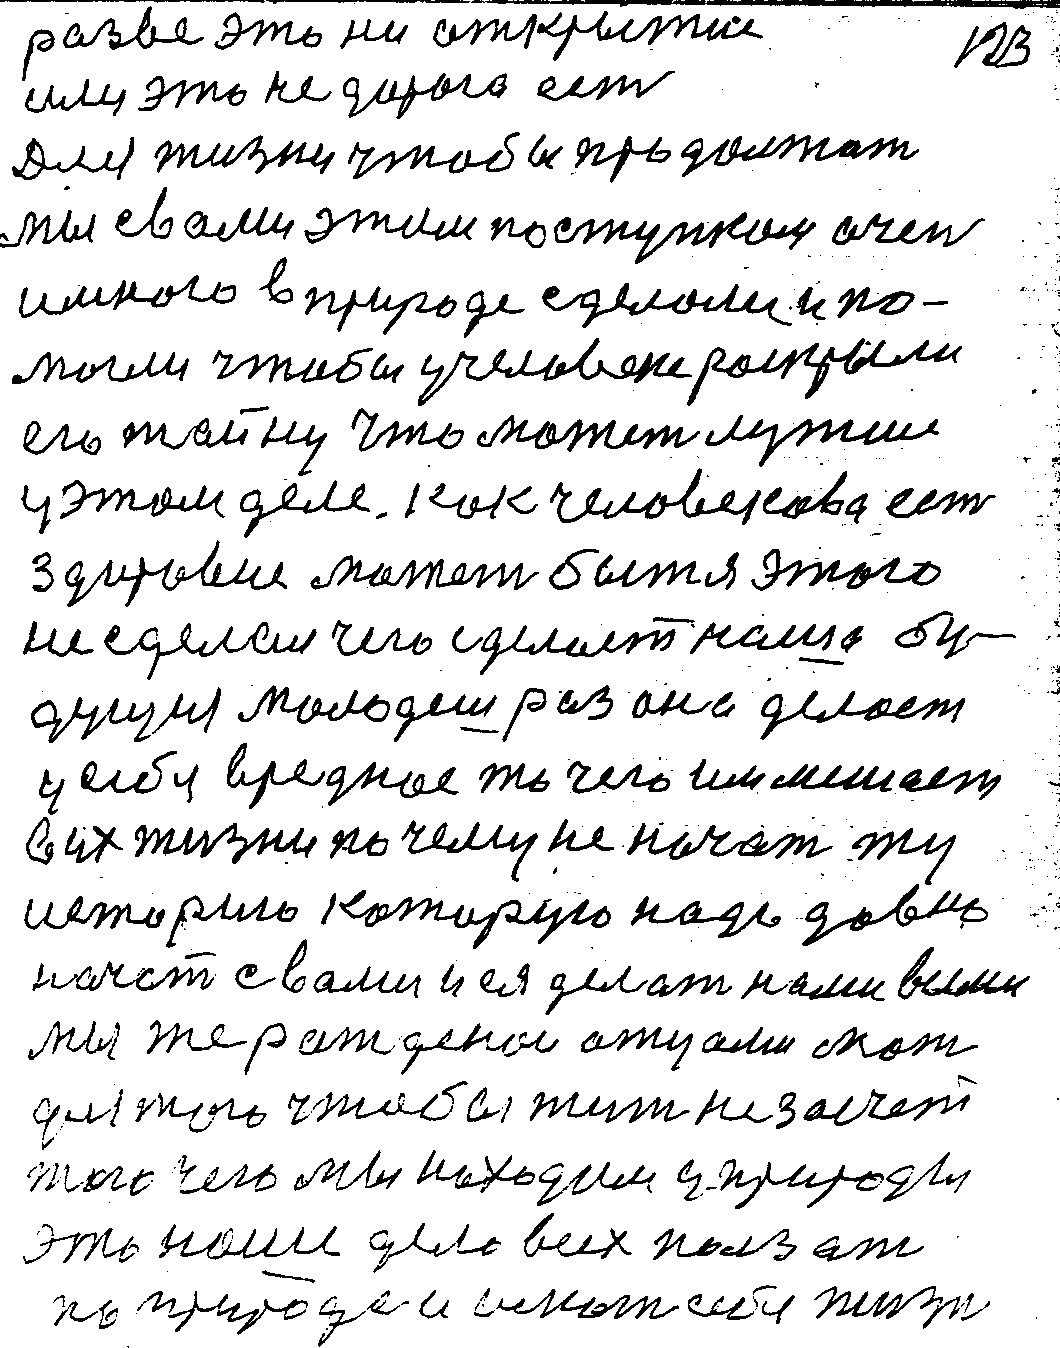 разве это ни открытие
123
или это не дорога ест
Для жизни чтобы продолжат
мы свами этим поступком очен
имного вприроде сделали и по-
могли чтобы учеловека раскрыли
его тайну что может лутше
уэтом деле. Как человекова ест
здоровие может быт я этого
не сделал чего сделает наша бу-
дущия молодеш раз она делает
усебя вредное то чего им мешает
вих жизни почему не начат ту
историю которую надо давно
начат свами и ея делат нами всеми
мы же рождении отцами мат
для того чтобы жит не засчет
того чего мы находим уприроды
это наше дело всех ползат
по природе и искат себе жизн